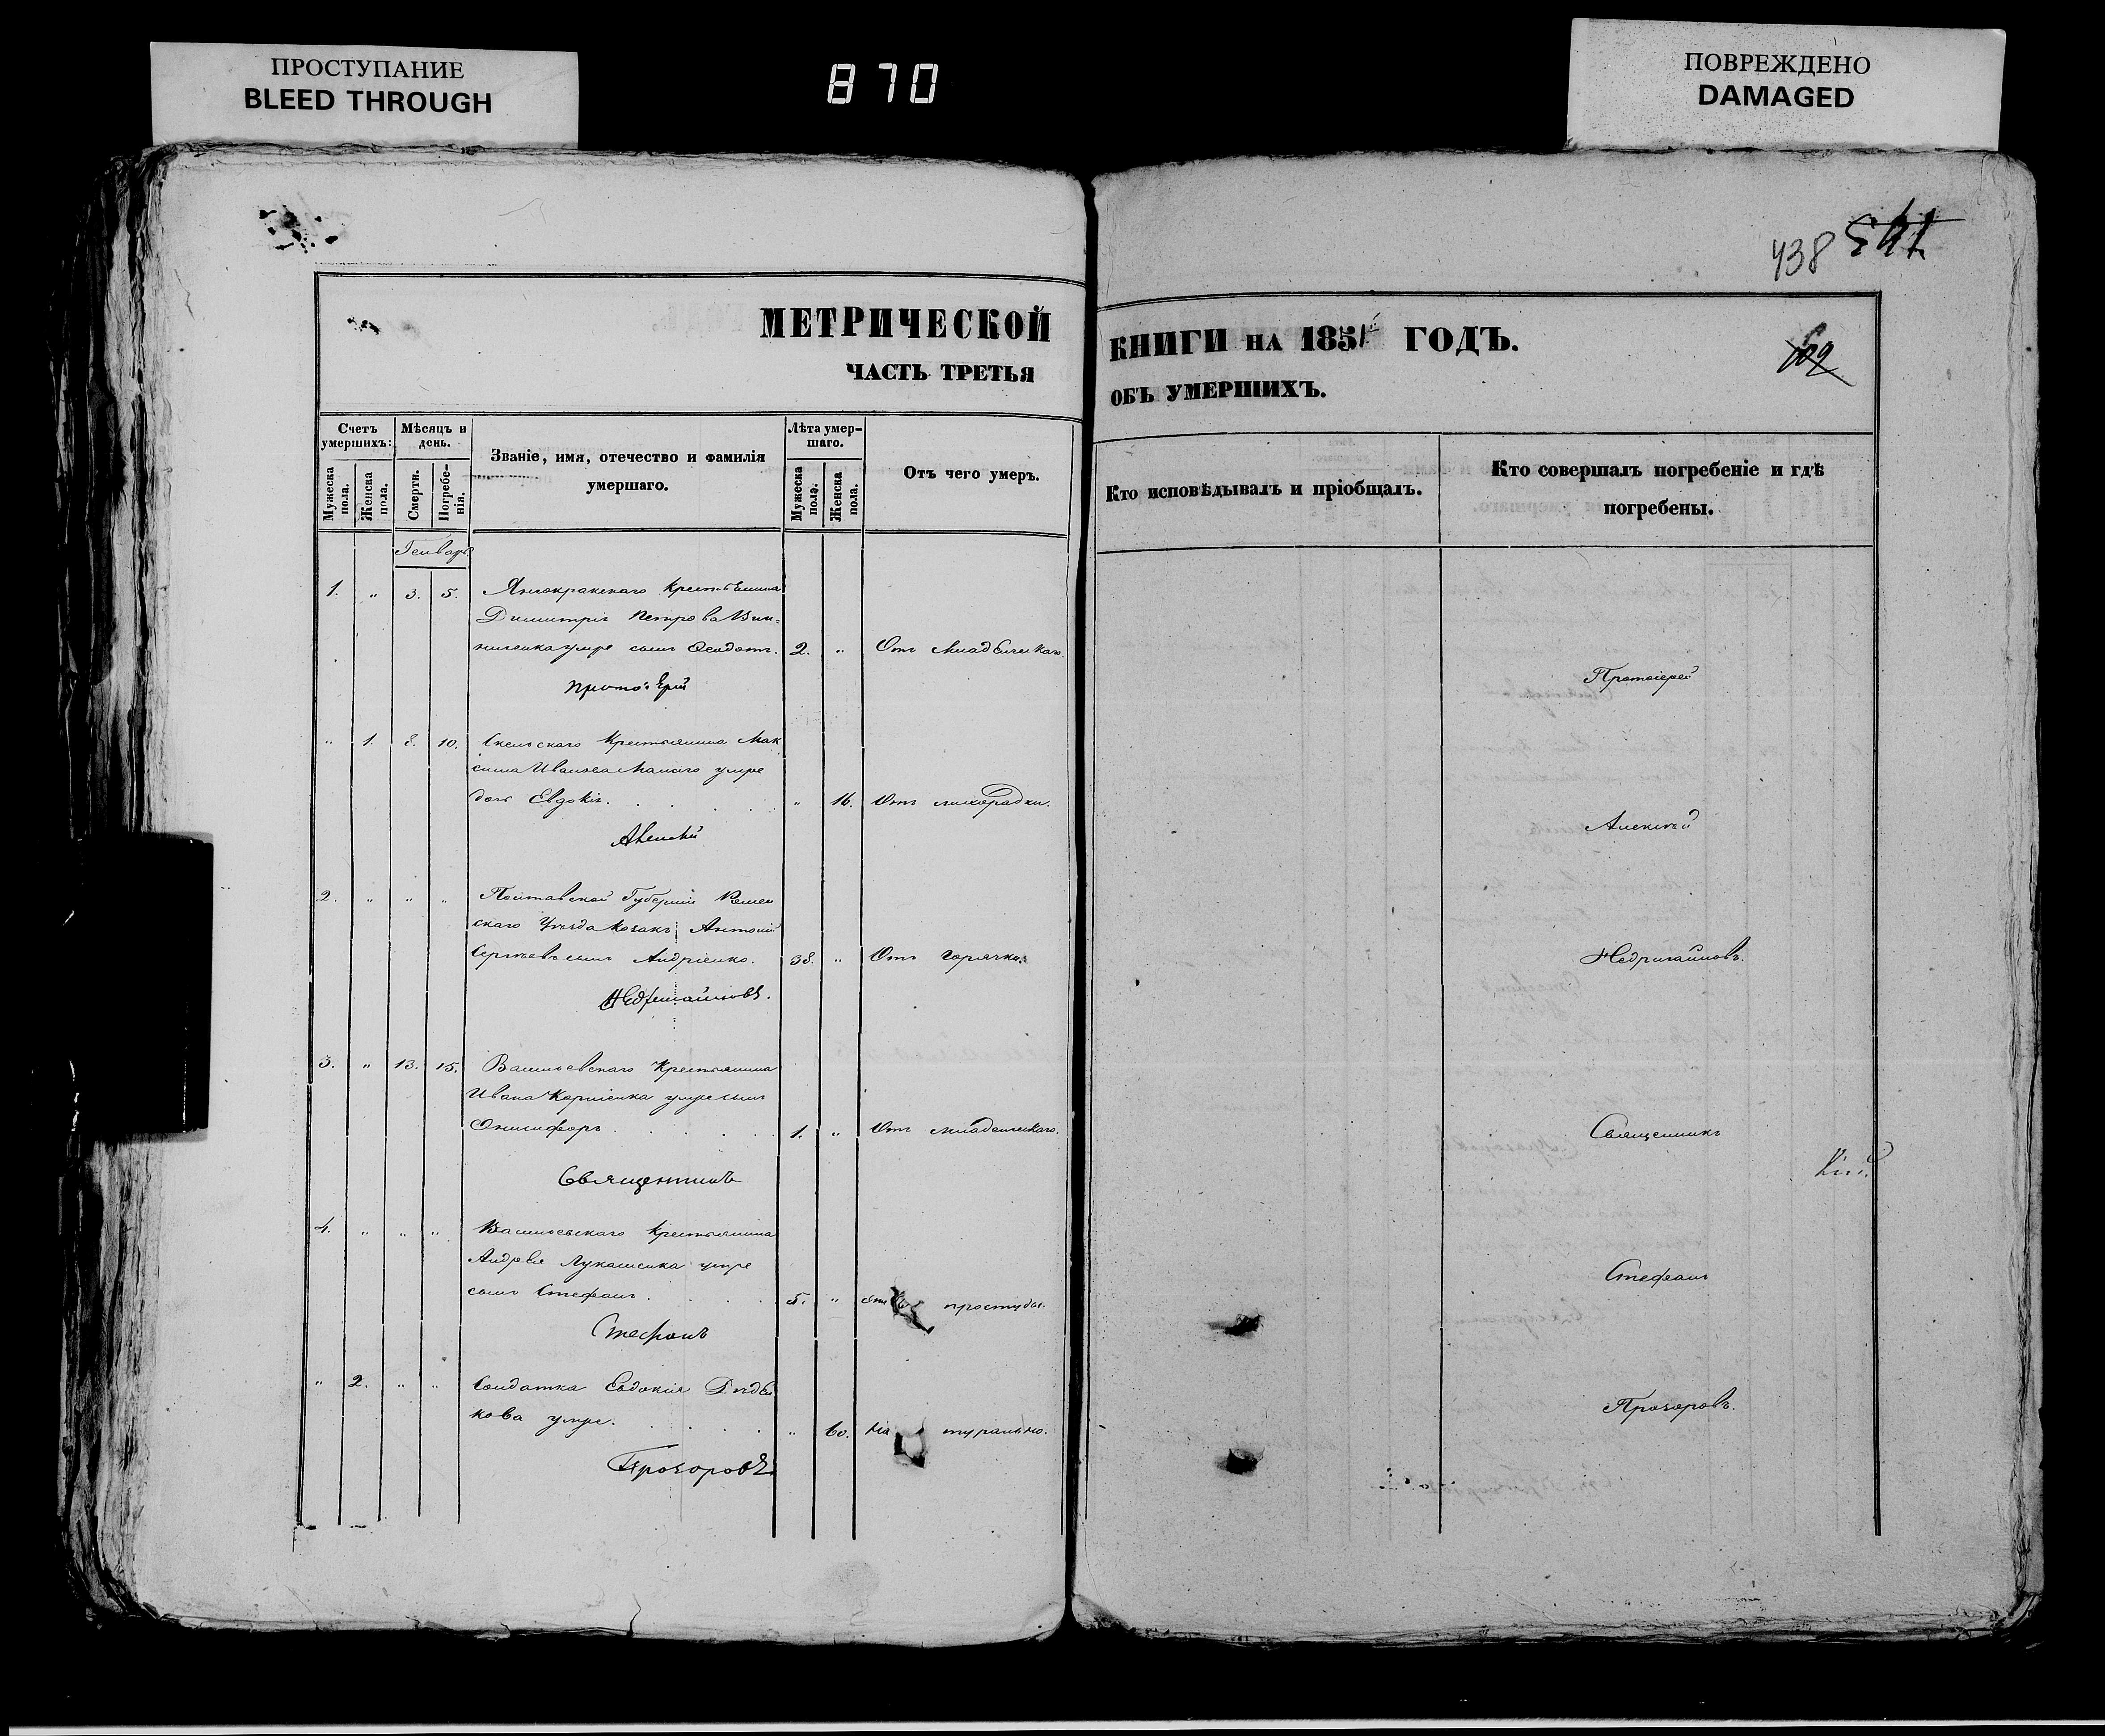 ПРОСТУПАНИЕ
BLEED THROUGH
870
ПОВРЕЖДЕНО
DAMAGED
438 541
МЕТРИЧЕСКОЙ КНИГИ НА 1851 ГОДЪ.
ЧАСТЬ ТРЕТЬЯ ОБЪ УМЕРШИХЪ.
Счетъ умершихъ:
Мужеска пола.
Женска пола.
Мѣсяцъ и день.
Смерти.
Погребенія.
Званіе, имя, отечество и фамилія
умершаго.
Лѣта умер-
шаго.
Мужеска пола.
Женска пола.
Отъ чего умеръ.
Кто исповѣдывалъ и пріобщалъ.
Кто совершалъ погребеніе и гдѣ
погребены.
Генварь
1. " 3. 5. Янчокракскаго
Димитрія Петрова Вин-
ниченка умре сынъ Ѳеодотъ. 2. " Отъ
Протоіерей
Протоіерей
" 1. 8. 10. Скельскаго Крестьянина Мак
сима Иванова умре
дочь Евдокія. " 16. Отъ лихорадки.
Алексій
Алексѣй
2. " " " Полтавской Губерніи
скаго Уѣзда Козакъ Антоній
Сергѣевъ сынъ Андріенко. 38. " Отъ горячки.
Недригайловъ.
Недригайловъ.
3. " 13. 15. Васильевскаго Крестьянина
Ивана Корніенка умре сынъ
Онисифоръ. 1. " Отъ младенческаго.
Священникъ
Священникъ
4. " " " Васильевскаго Крестьянина
Андрея Лукашенка умре
сынъ Стефанъ. 5. " отъ простуды.
Стефанъ
Стефанъ
" 2. " " Солдатка Евдокія
кова умре. " 60. Натурально.
Прозоровъ
Прозоровъ.